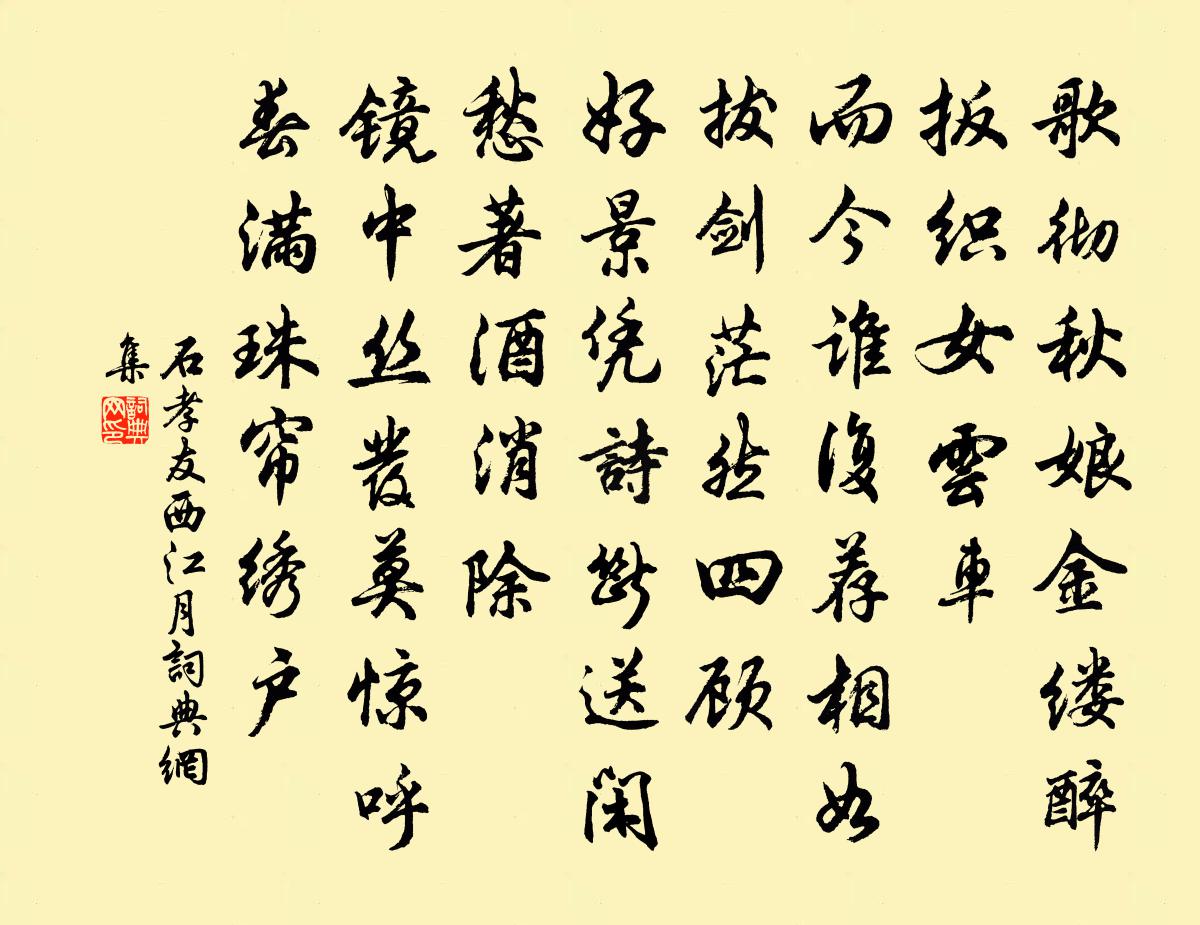 歌彻秋娘金缕醉
扳织女雲車
而今谁復荐相如
拔剑茫然四顾
好景凭詩断送闲
愁著酒消除
镜中丝发莫惊呼
春满珠帘绣户
石孝友西江月詞典網
集
詞典網印